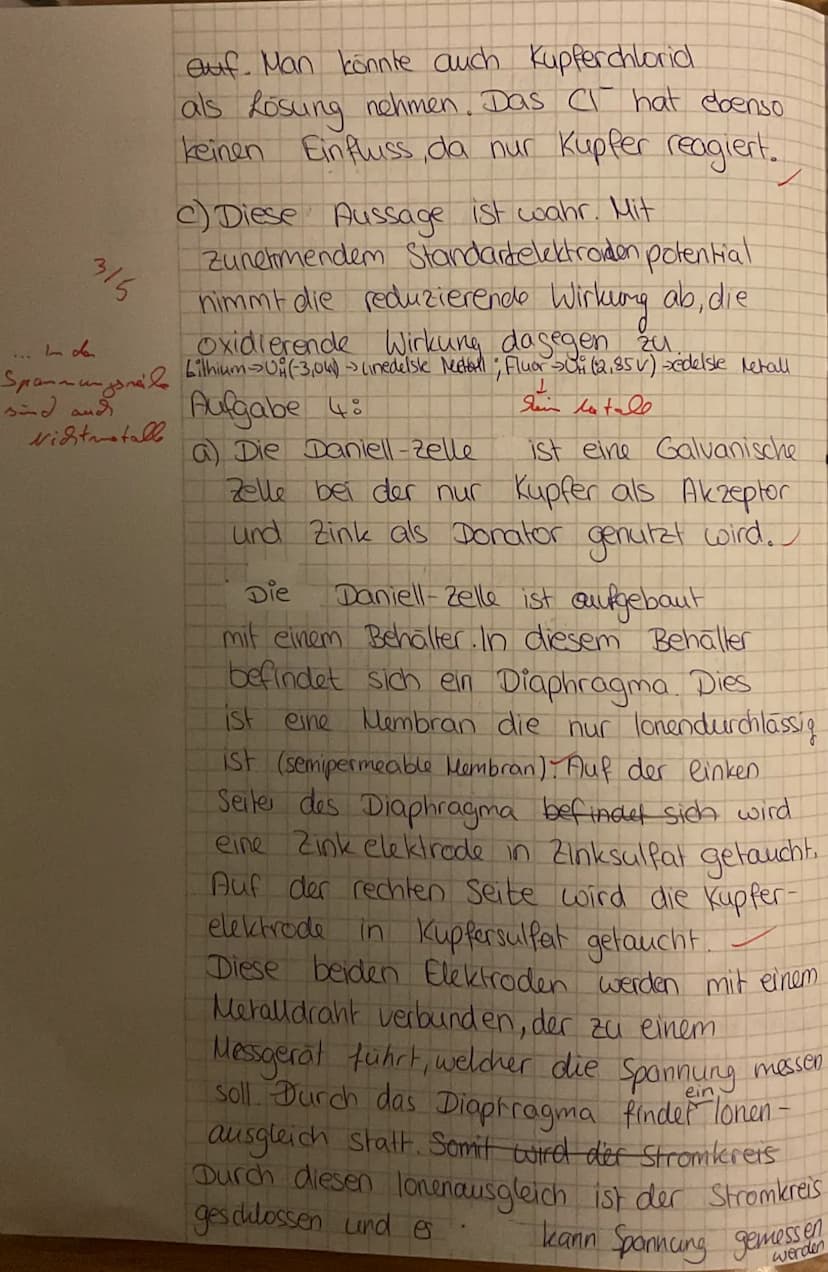 auf. Man könnte auch Kupferchlorid
als Lösung nehmen. Das Cl⁻ hat ebenso
keinen Einfluss, da nur Kupfer reagiert.
c) Diese Aussage ist wahr. Mit
zunehmendem Standardtelektroden potential
3/5
nimmt die reduzierende Wirkung ab, die
oxidierende Wirkung dagegen zu
... in der
Spannungsreihe
sind auch
Nichtmetalle
Lithium → (-3,04) → unedelste Metall ; Fluor → (2,85V) → edelste Metall
↓
kein Metall
Aufgabe 4:
a) Die Daniell-Zelle ist eine Galvanische
Zelle bei der nur Kupfer als Akzeptor
und Zink als Donator genutzt wird.
Die Daniell-Zelle ist aufgebaut
mit einem Behälter. In diesem Behälter
befindet sich ein Diaphragma. Dies
ist eine Membran die nur Ionendurchlässig
ist (semipermeable Membran). Auf der einken
Seite des Diaphragma befindet sich wird
eine Zinkelektrode in Zinksulfat getaucht.
Auf der rechten Seite wird die Kupfer-
elektrode in Kupfersulfat getaucht.
Diese beiden Elektroden werden mit einem
Metalldraht verbunden, der zu einem
Messgerät führt, welcher die Spannung messen
soll. Durch das Diaphragma findet ein Ionen-
ausgleich statt. Somit wird der Stromkreis
Durch diesen Ionenausgleich ist der Stromkreis
geschlossen und es kann Spannung gemessen
werden